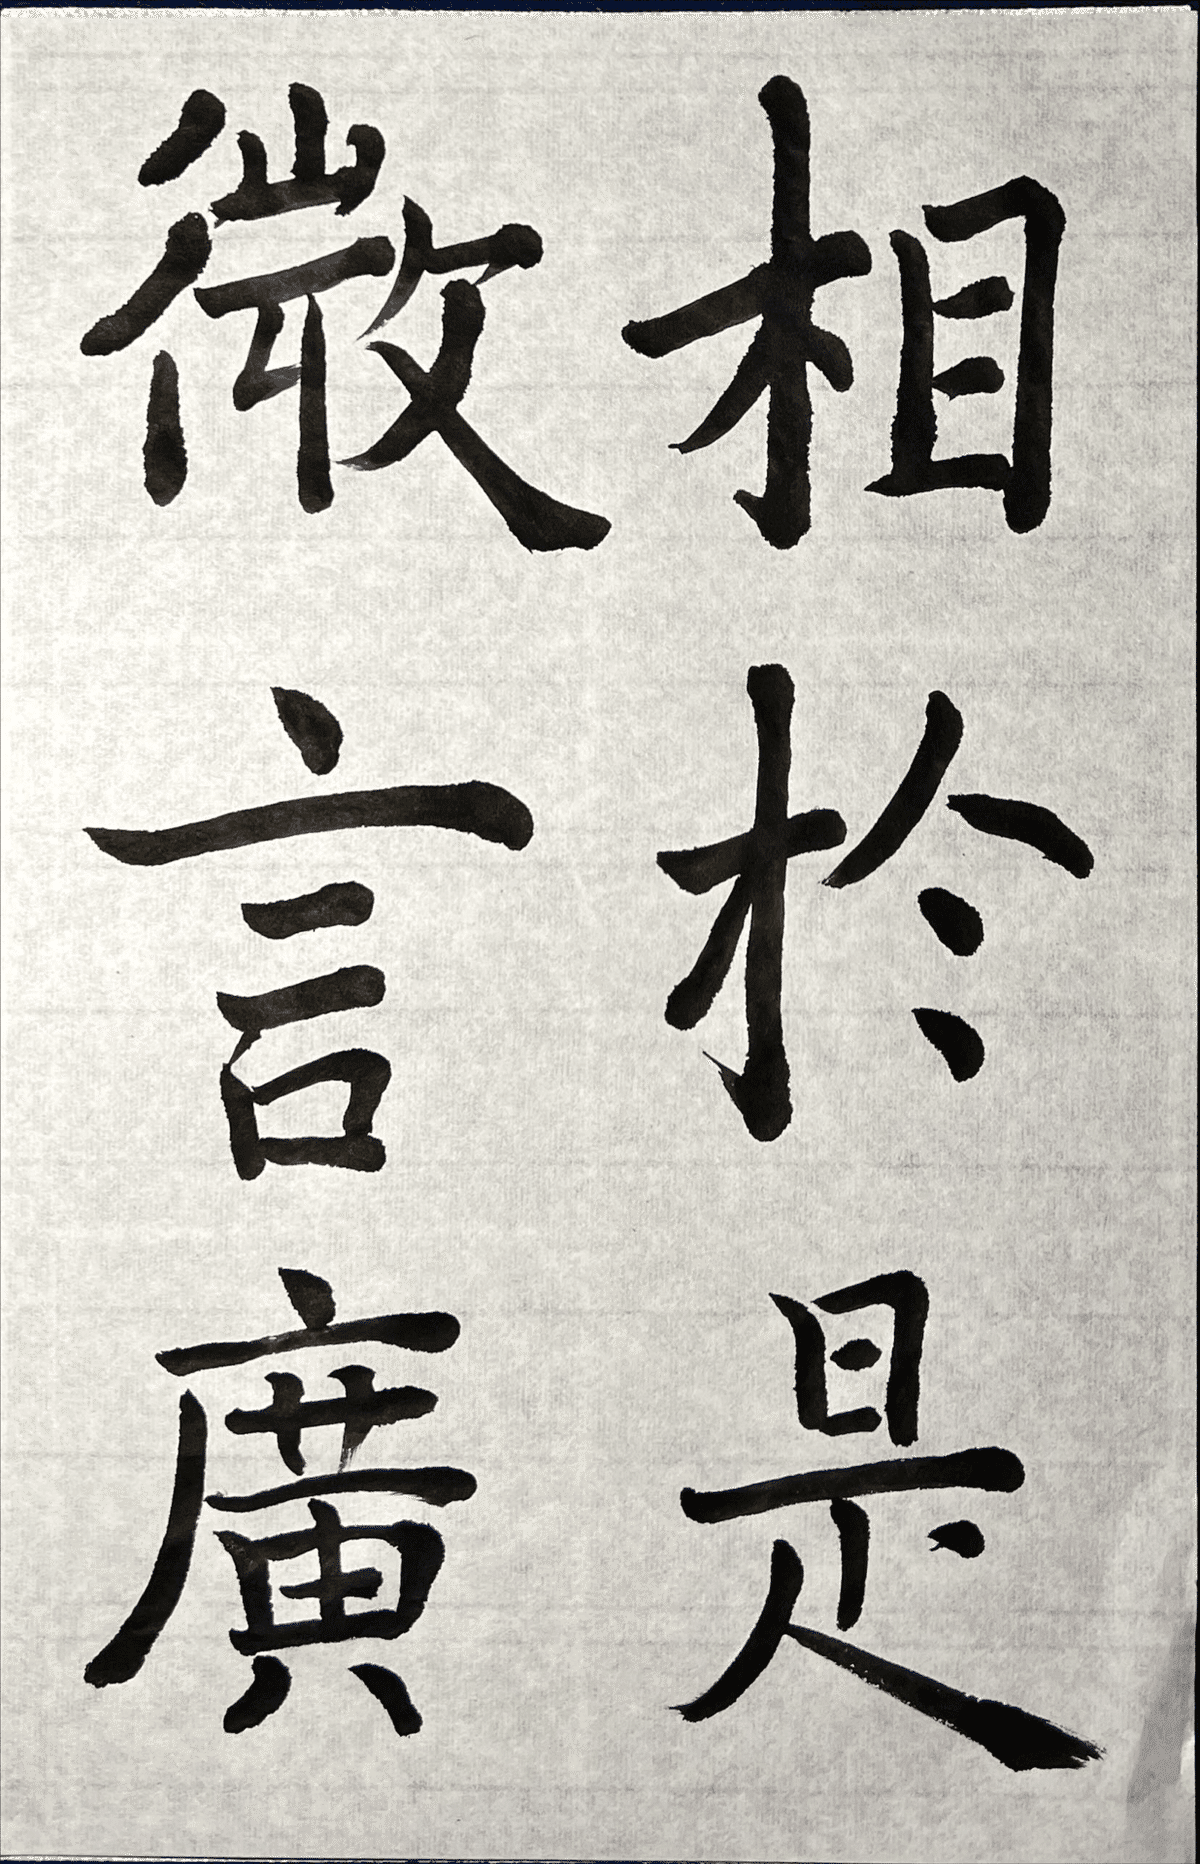 相於是
微言廣